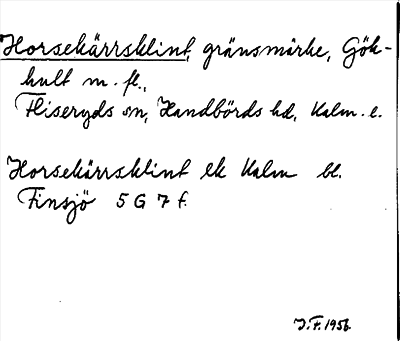 Horsekärrsklint, gränsmärke, Gök-
hult m. fl.,
Fliseryds sn, Handbörds hd, Kalm. l.
Horsekärrsklint ek Kalm bl.
Finsjö 5 G 7 f.
J.F. 1956